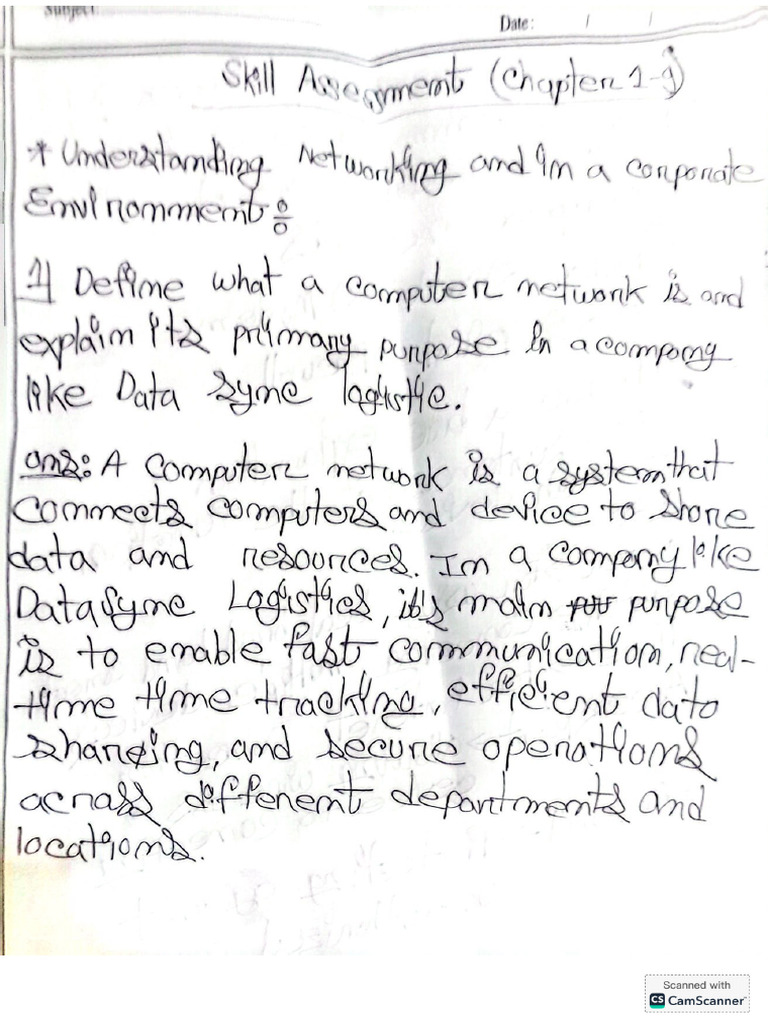 Subject:
Date: / /
Skill Assesment (Chapter 1-9)
* Understanding Networking and in a corporate
Envirnomment:
1) Define what a computer network is and
explain it's primary purpose in a company
like Data Sync logistic.
ans: A Computer network is a system that
Connects computers and device to share
data and resources. In a company like
DataSync Logistics, it's main purpose
is to enable fast communication, real-
time time tracking, efficient data
sharing, and secure operations
across different departments and
locations.
Scanned with
CS CamScanner